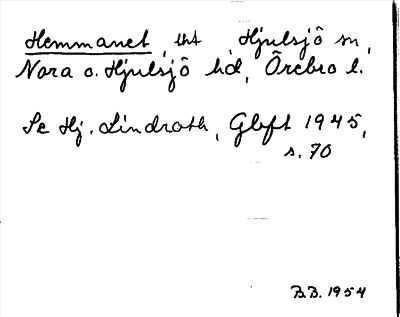 Hemmanet, tht, Hjulsjö sn,
Nora o. Hjulsjö hd, Örebro l.
Se Hj. Lindroth, Gbft 1945,
s. 70
B.B. 1954